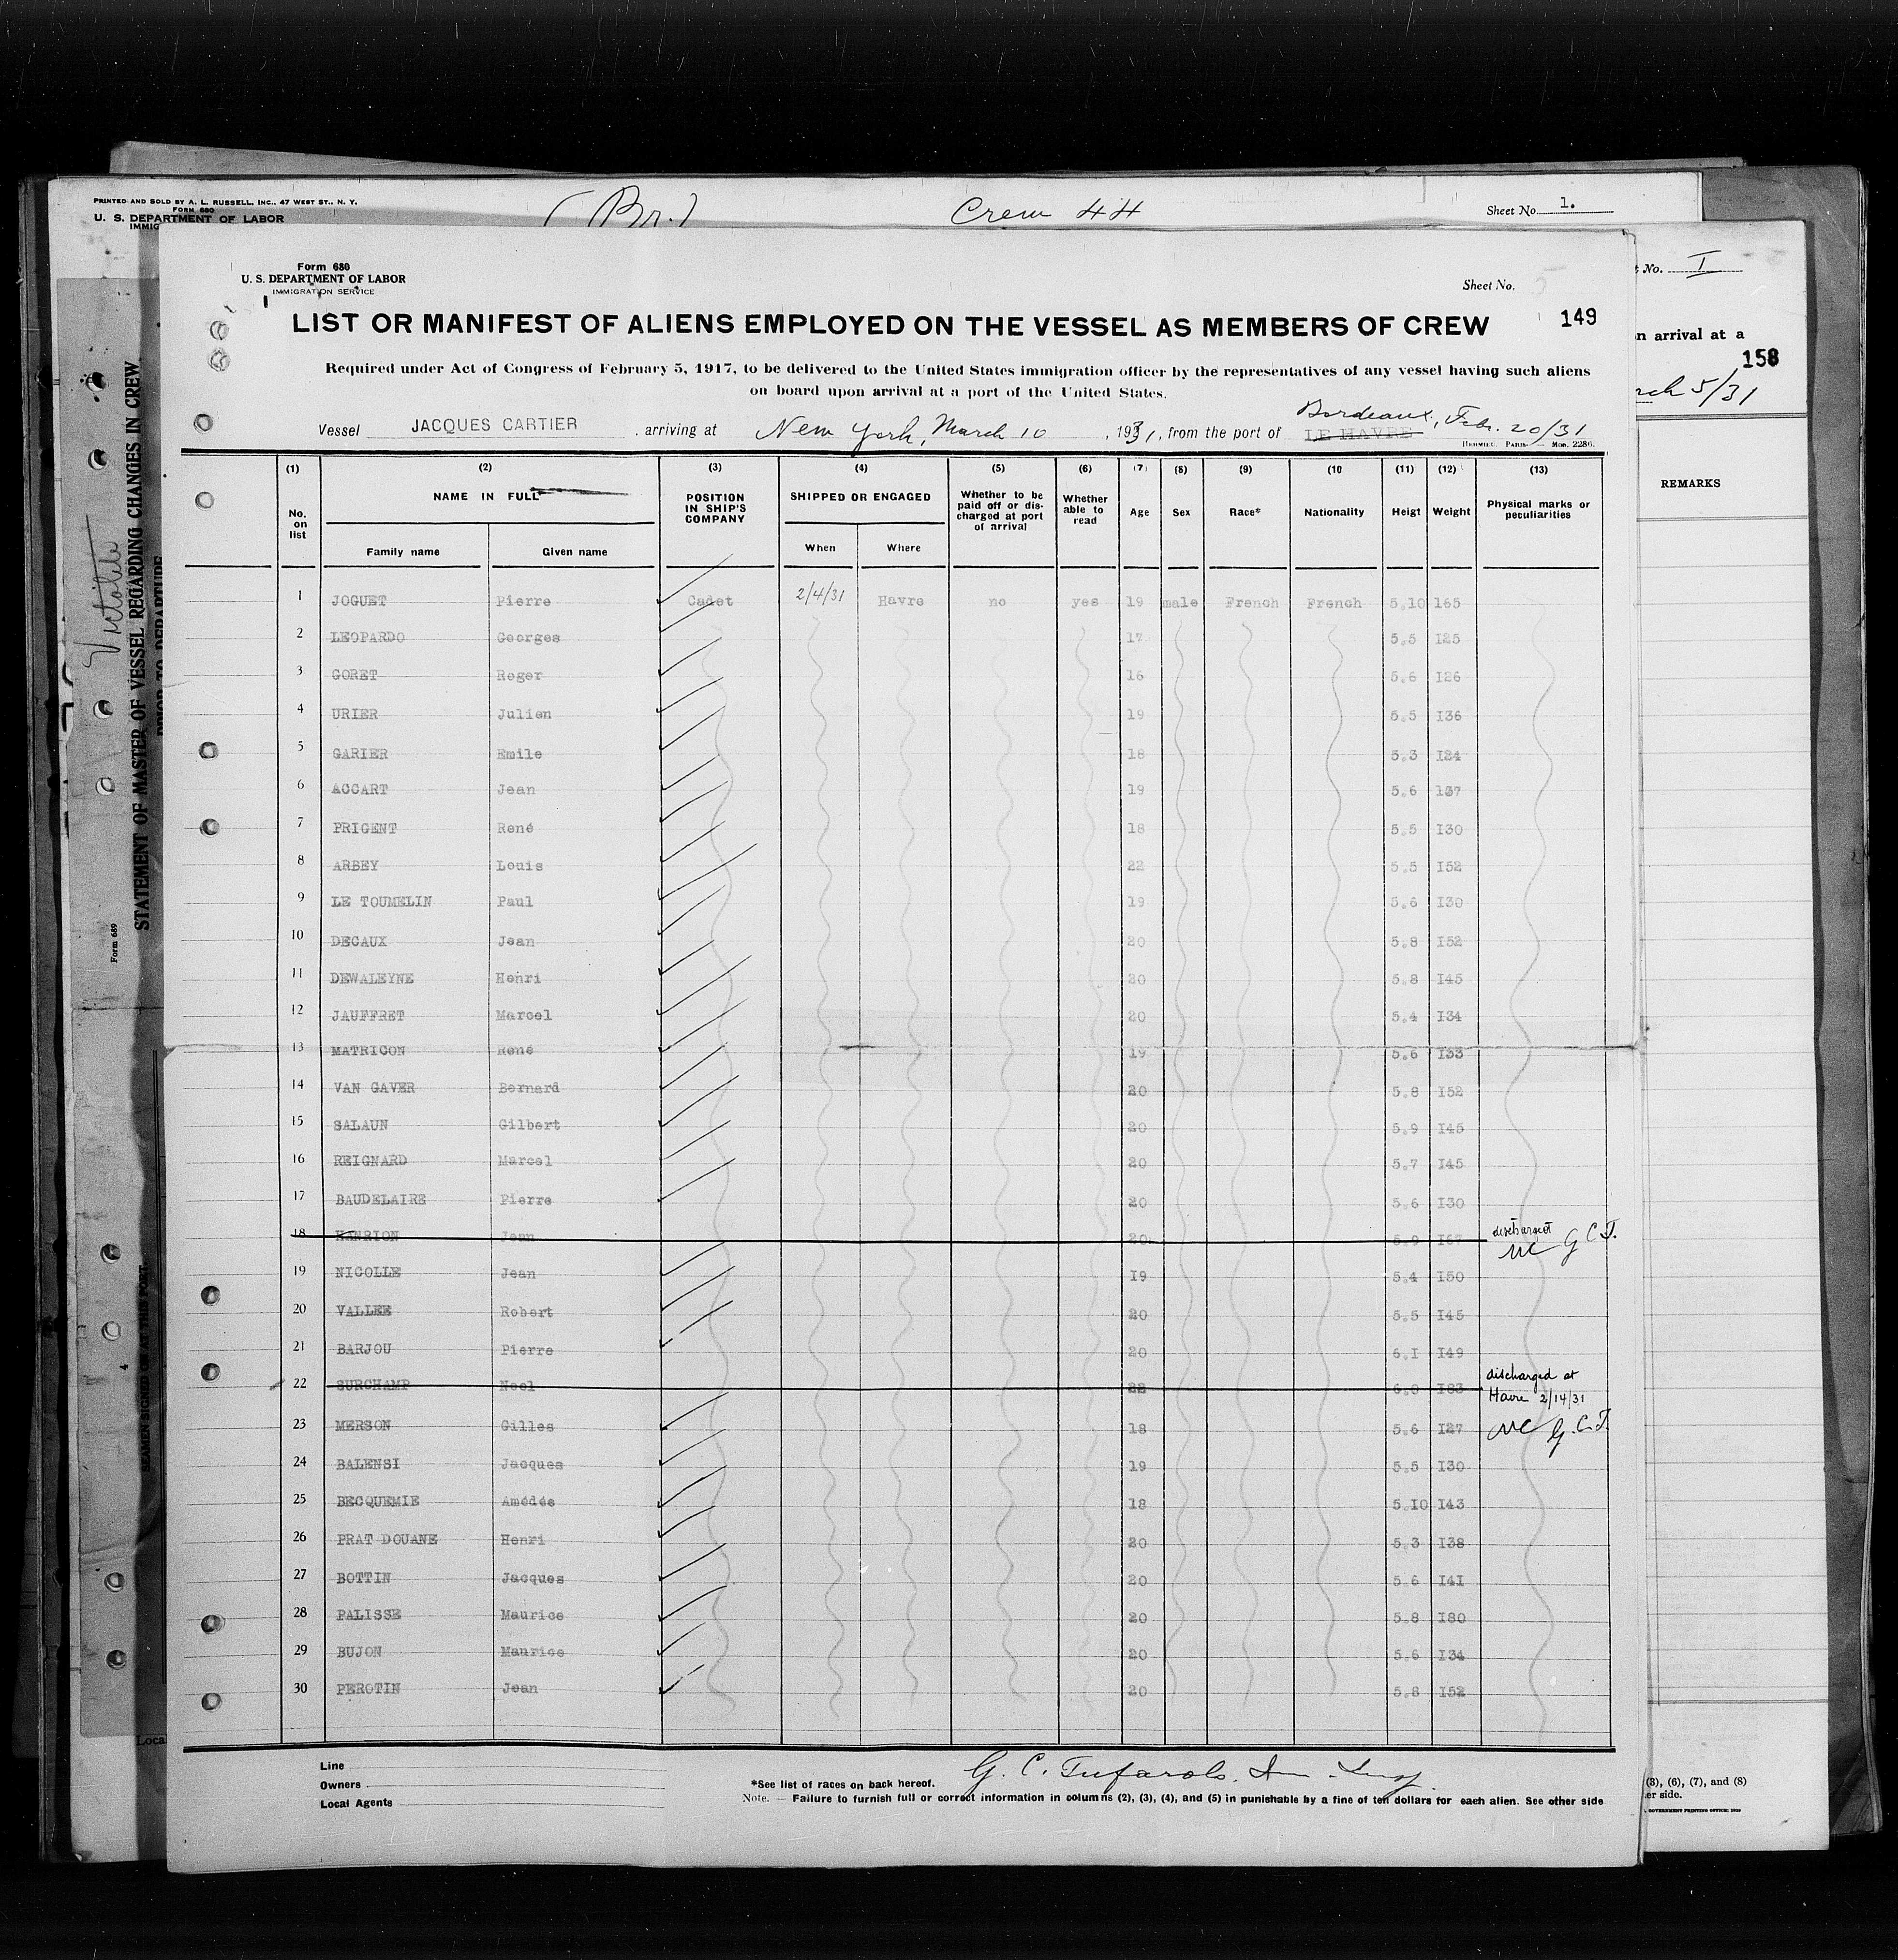 PRINTED AND SOLD BY A. L. RUSSELL, INC., 47 WEST ST., N. Y.
FORM 680
U. S. DEPARTMENT OF LABOR
IMMIG
(Br.)
Crew 44
Sheet No. 1.
t No. I
n arrival at a
158
rch 5/31
REMARKS
(3), (6), (7), and (8)
er side.
. GOVERNMENT PRINTING OFFICE:
STATEMENT OF MASTER OF VESSEL REGARDING CHANGES IN CREW
PRIOR TO DEPARTURE
Form 689
SEAMEN SIGNED ON AT THIS PORT
4
Loca
Form 680
U. S. DEPARTMENT OF LABOR
IMMIGRATION SERVICE
Sheet No. 5
149
LIST OR MANIFEST OF ALIENS EMPLOYED ON THE VESSEL AS MEMBERS OF CREW
Required under Act of Congress of February 5, 1917, to be delivered to the United States immigration officer by the representatives of any vessel having such aliens
on board upon arrival at a port of the United States.
Vessel JACQUES CARTIER . arriving at New York, March 10, 1931, from the port of LE HAVRE Bordeaux, Febr. 20/31
HERMIEU. PARIS. — MOD. 2286.
(1) (2) (3) (4) (5) (6) (7) (8) (9) (10 (11) (12) (13)
No. on list
NAME IN FULL
Family name Given name
POSITION IN SHIP'S COMPANY
SHIPPED OR ENGAGED
When Where
Whether to be paid off or discharged at port of arrival
Whether able to read
Age Sex Race* Nationality Heigt Weight
Physical marks or peculiarities
1 JOGUET Pierre Cadet 2/4/31 Havre no yes 19 male French French 5.10 165
2 LEOPARDO Georges 17 5.5 I25
3 GORET Roger 16 5.6 I26
4 URIER Julien 19 5.5 I36
5 GARIER Emile 18 5.3 I24
6 ACCART Jean 19 5.6 137
7 PRIGENT René 18 5.5 I30
8 ARBEY Louis 22 5.5 I52
9 LE TOUMELIN Paul 19 5.6 I30
10 DECAUX Jean 20 5.8 I52
11 DEWALEYNE Henri 20 5.8 I45
12 JAUFFRET Marcel 20 5.4 I34
13 MATRICON René 19 5.6 I33
14 VAN GAVER Bernard 20 5.8 I52
15 SALAUN Gilbert 20 5.9 I45
16 REIGNARD Marcel 20 5.7 I45
17 BAUDELAIRE Pierre 20 5.6 I30
18 HANRION Jean 20 5.9 I67 discharged G C T.
19 NICOLLE Jean I9 5.4 I50
20 VALLEE Robert 20 5.5 I45
21 BARJOU Pierre 20 6.I I49
22 SURCHAMP Noel 22 6.0 I83 discharged at Havre 2/14/31
23 MERSON Gilles 18 5.6 I27 G. C. T.
24 BALENSI Jacques 19 5.5 I30
25 BECQUEMIE Amédée 18 5.I0 I43
26 PRAT DOUANE Henri 20 5.3 I38
27 BOTTIN Jacques 20 5.6 I4I
28 PALISSE Maurice 20 5.8 I80
29 BUJON Maurice 20 5.6 I34
30 PEROTIN Jean 20 5.8 I52
Line
Owners
Local Agents
*See list of races on back hereof.
Note. — Failure to furnish full or correct information in columns (2), (3), (4), and (5) in punishable by a fine of ten dollars for each alien. See other side